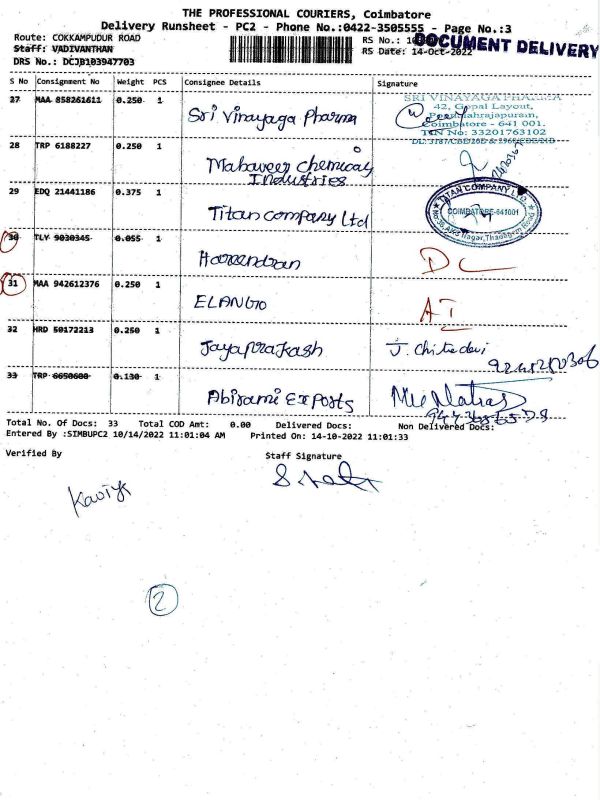 THE PROFESSIONAL COURIERS, Coimbatore
Delivery Runsheet - PC2 - Phone No.:0422-3505555 - Page No.:3
Route: COKKAMPUDUR ROAD RS No.: DOCUMENT DELIVERY
Staff: VADIVANTHAN RS Date: 14-Oct-2022
DRS No.: DCJB103947703
S No Consignment No Weight PCS Consignee Details Signature
27 MAA 858261611 0.250 1 Sri Vinayaga Pharma
SRI VINAYAGA PHARMA
42, Gopal Layout,
Ponnaiahrajapuram,
Coimbatore - 641 001.
TIN No: 33201763102
28 TRP 6188227 0.250 1 Mahaveer Chemicals
Industries
29 EDQ 21441186 0.375 1 Titan Company Ltd
TITAN COMPANY LTD.
COIMBATORE-641001
30 TLY 9030345 0.055 1 Harendran DC
31 MAA 942612376 0.250 1 ELANGO AI
32 HRD 50172213 0.250 1 Jayaprakash J. Chitradevi
33 TRP 6650600 0.130 1 Abirami Exports
Total No. Of Docs: 33 Total COD Amt: 0.00 Delivered Docs: Non Delivered Docs:
Entered By :SIMBUPC2 10/14/2022 11:01:04 AM Printed On: 14-10-2022 11:01:33
Verified By Staff Signature
Kaviya
2